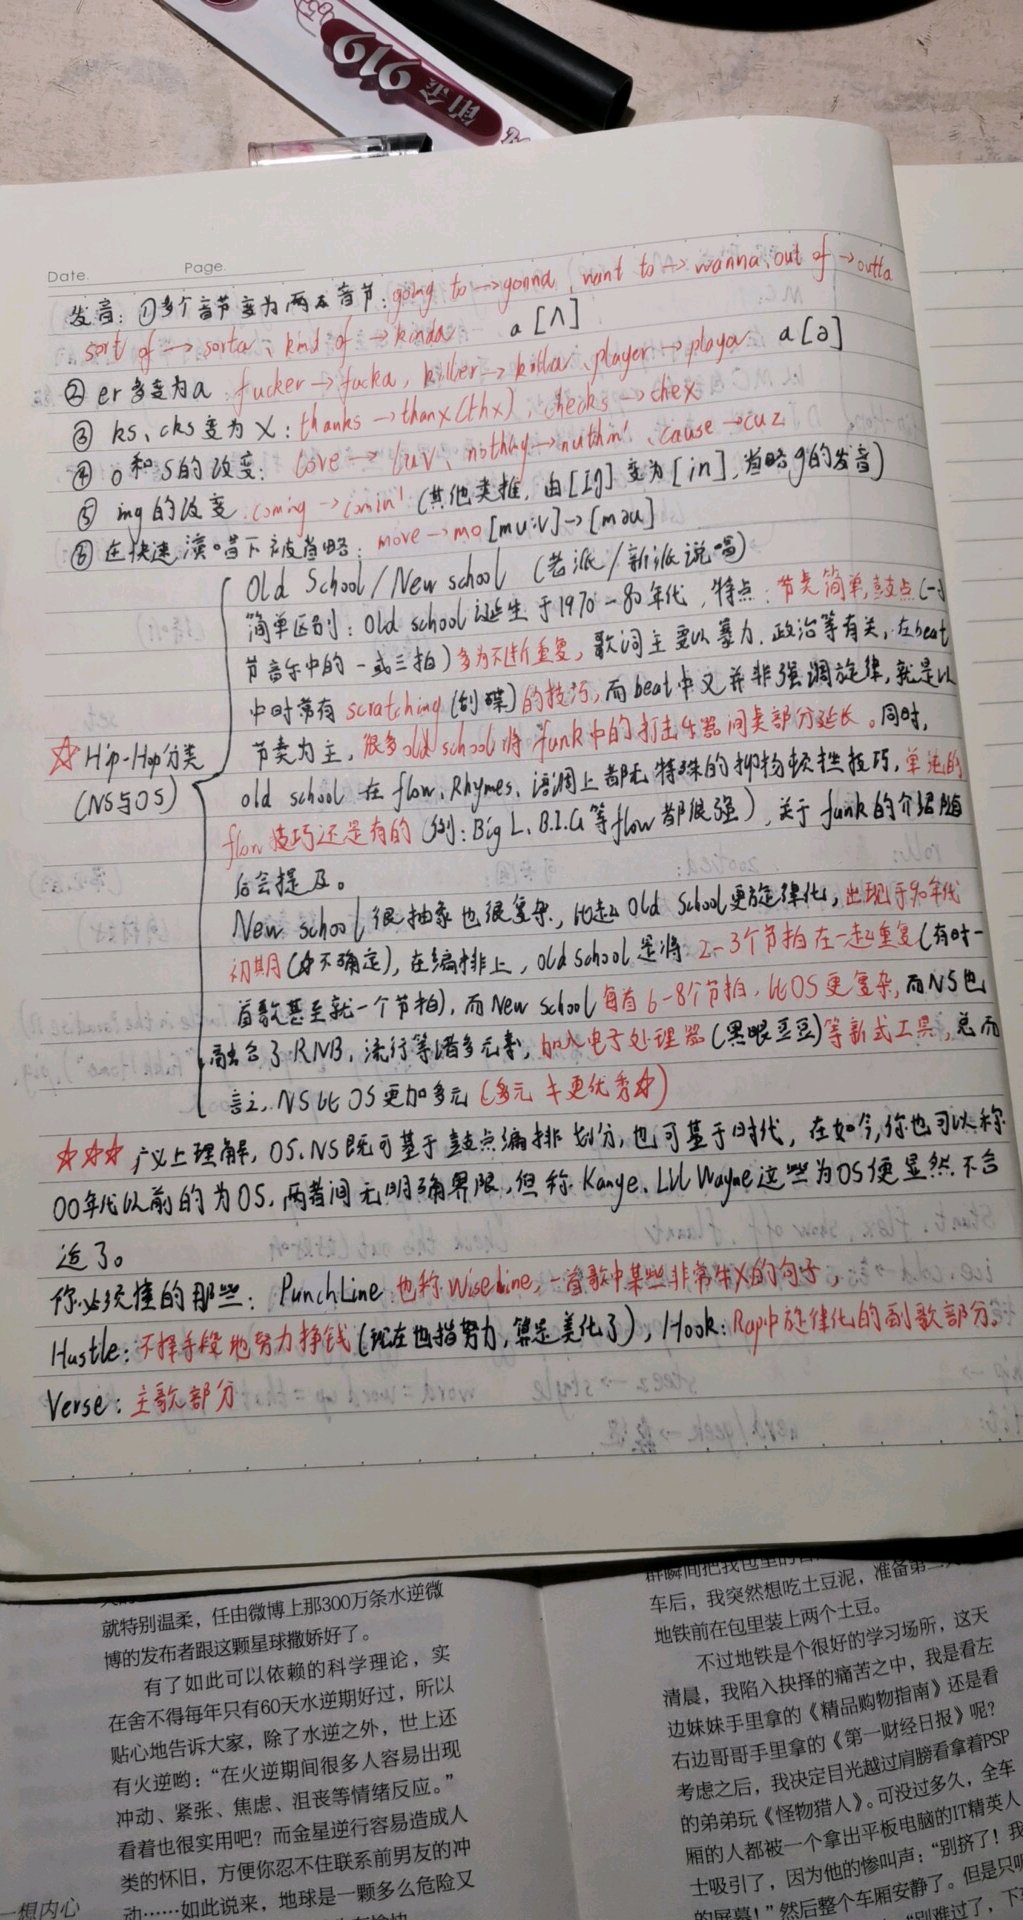 919
Date.
Page.
发音：①多个音节变为两大音节：going to→gonna、want to→wanna、out of→outta
sort of→sorta、kind of→kinda a[ʌ]
②er多变为a fucker→fucka，killer→killa、player→playa a[ə]
③ks、cks变为X：thanks→thanx(thx)、checks→chex
④o和s的改变：love→luv、nothing→nuthin'、cause→cuz
⑤ing的改变 coming→comin'(其他类推，由[Iŋ]变为[in]，省略g的发音)
⑥在快速演唱下被省略：move→mo[mu:v]→[məu]
Old School/New school (老派/新派说唱)
简单区别：Old school诞生于1970-80年代，特点：节奏简单，鼓点(一小
节音乐中的一或三拍)多为不断重复，歌词主要以暴力、政治等有关，在beat
中时常有scratching(刮碟)的技巧，而beat中又并非强调旋律，就是以
☆Hip-Hop分类
(NS与OS)
节奏为主，很多old school将funk中的打击乐器间奏部分延长。同时，
old school在flow、Rhymes、语调上都无特殊的抑扬顿挫技巧，单纯的
flow技巧还是有的(例：Big L、B.I.G等flow都很强)，关于funk的介绍随
后会提及。
New school很抽象也很复杂，比起Old School更旋律化，出现于90年代
初期(不确定)，在编排上，old school是将2-3个节拍在一起重复(有时一
首歌甚至就一个节拍)，而New school每首6-8个节拍，比OS更复杂，而NS也
融合了RNB，流行等诸多元素，加入电子处理器(黑眼豆豆)等新式工具，总而
言之，NS比OS更加多元(多元≠更优秀☆)
☆☆☆广义上理解，OS、NS既可基于鼓点编排划分，也可基于时代，在如今，你也可以称
00年代以前的为OS，两者间无明确界限，但称Kanye、Lil Wayne这些为OS便显然不合
适了。
你必须懂的那些：PunchLine：也称Wiseline，一首歌中某些非常牛X的句子，
Hustle：不择手段地努力挣钱(现在也指努力，算是美化了)，Hook：Rap中旋律化的副歌部分。
Verse：主歌部分
就特别温柔，任由微博上那300万条水逆微
博的发布者跟这颗星球撒娇好了。
有了如此可以依赖的科学理论，实
在舍不得每年只有60天水逆期好过，所以
贴心地告诉大家，除了水逆之外，世上还
有火逆哟：“在火逆期间很多人容易出现
冲动、紧张、焦虑、沮丧等情绪反应。”
看着也很实用吧？而金星逆行容易造成人
类的怀旧，方便你忍不住联系前男友的冲
动……如此说来，地球是一颗多么危险又
一想内心
群瞬间把我包里的
车后，我突然想吃土豆泥，准备第二
地铁前在包里装上两个土豆。
不过地铁是个很好的学习场所，这天
清晨，我陷入抉择的痛苦之中，我是看左
边妹妹手里拿的《精品购物指南》还是看
右边哥哥手里拿的《第一财经日报》呢？
考虑之后，我决定目光越过肩膀看拿着PSP
的弟弟玩《怪物猎人》。可没过多久，全车
厢的人都被一个拿出平板电脑的IT精英人
士吸引了，因为他的惨叫声：“别挤了！我
的屏幕！”然后整个车厢安静了。但是只
“别难过了，下